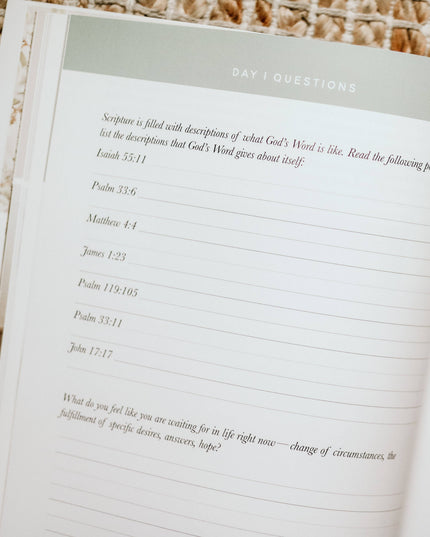 DAY 1 QUESTIONS
Scripture is filled with descriptions of what God's Word is like. Read the following
list the descriptions that God's Word gives about itself:
Isaiah 55:11
Psalm 33:6
Matthew 4:4
James 1:23
Psalm 119:105
Psalm 33:11
John 17:17
What do you feel like you are waiting for in life right now—change of circumstances, the
fulfillment of specific desires, answers, hope?